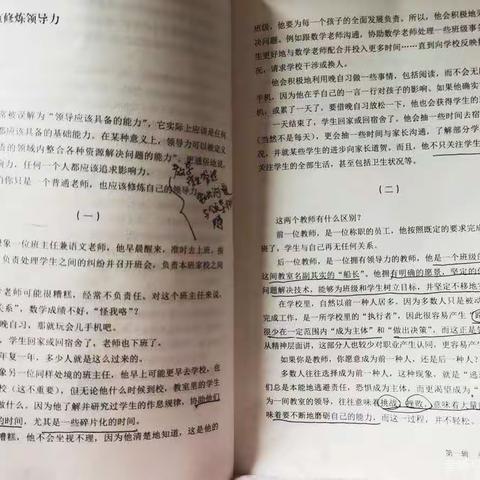 修炼领导力
常被误解为“领导应该具备的能力”，它实际上应该是任何
都应该具备的基础能力。在某种意义上，领导力可以被定义
的领域内整合各种资源解决问题的能力”，更通俗地说，
响力，任何一个人都应该追求影响力。
你只是一个普通老师，也应该修炼自己的领导力
（一）
象一位班主任兼语文老师，他早晨醒来，准时去上班，按
负责处理学生之间的纠纷并召开班会，负责本班家校之间
学老师可能很糟糕，经常不负责任。对这个班主任来说，
关系”，数学成绩不好，“怪我咯”？
晚自习，那就玩会儿手机吧。
，学生回家或回宿舍了，老师也下班了。
年复一年，多少人就是这么过来的。
像另一位同样处境的班主任，他早上可能更早去学校，也
校（这不重要），但无论他什么时候到校，教室里的学生
做什么，因为他了解并研究过学生的作息规律，协助他们
的时间，尤其是一些碎片化的时间。
糟糕，他不会坐视不理，因为他清楚地知道，这是他的
班级，他要为每一个孩子的全面发展负责。所以，他会积极地
决问题。例如跟数学老师沟通，协助数学老师处理一些班级事务
里更好地与数学老师配合并投入更多时间……直到向学校反映
况，请求学校干涉或换人。
他会积极地利用晚自习做一些事情，包括阅读，而不会无
手机，因为他在乎自己的一言一行对孩子的影响。如果他确实
，或累了一天了，要借晚自习放松一下，他也会获得学生的
一天结束了，学生回家或回宿舍了，他会抽一些时间去宿
（当然不是每天），更会抽一些时间与家长沟通，了解部分学
况，并就某些学生的进步向家长道贺。而且，他不只关注学生
关注学生的全部生活，甚至包括卫生状况等。
（二）
这两个教师有什么区别？
前一位教师，是一位称职的员工，他按照既定的要求完成
班了，学生与自己再无任何关系。
后一位教师，是一位拥有领导力的教师，他是一个班级的
这间教室名副其实的“船长”，他拥有明确的愿景，坚定的
问题解决技术，能够为班级和学生树立目标，并坚定不移地实
在学校里，当然以前一种人居多。因为多数人只是被动
完成工作，是一所学校里的“执行者”，因此很容易产生
很少在一定范围内“成为主体”和“做出决策”，而这正是
从精神层面讲，这部分人也较少对职业产生认同，更容易产生
如果你是教师，你愿意成为前一种人，还是后一种人？
多数人往往选择成为前一种人，这种现象，就是“逃
们总是本能地逃避责任，恐惧成为主体，而更渴望成为“
为一间教室的领导，往往意味着挑战、挫败，意味着大量
味着要不断地磨砺自己的能力，而这一过程，并不轻松。
第一辑